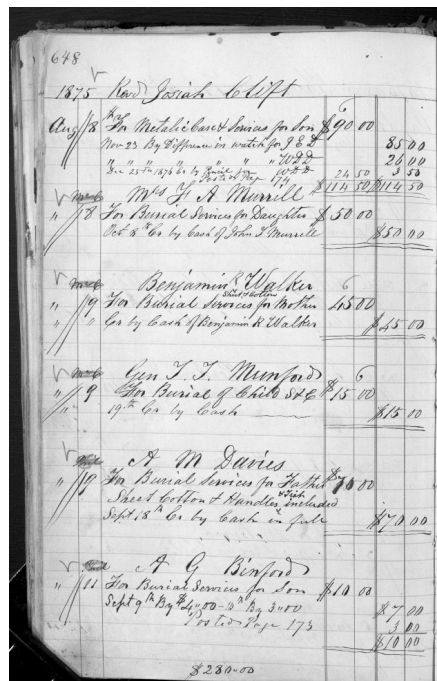 648
1875 Revd Josiah Clift
Aug 8th For Metalic Case & Services for Son $90 00
Nov 23 By Difference in watch for J E D 85 00
" " " " " " " W D D 26 00
Dec 25th 1876 Cr by 24 50 3 50
Posted Page 74 $114 50 $114 50
Mrs F A Murrell
" 8 For Burial Services for Daughter $50 00
Oct 8th Cr by Cash of John T Murrell $50 00
Benjamin R Walker
Sheet & Cotton
" 9 For Burial Services for Mother 45 00
" " Cr by Cash of Benjamin R Walker $45 00
Gen T T Munford
" 9 For Burial of Child S & C $15 00
" 19th Cr by Cash $15 00
A M Davies
" 9 For Burial Services for Father $70 00
Sheet Cotton & Handles included
Sept 18th Cr by Cash in full $70 00
A G Binford
" 11 For Burial Services for Son $10 00
Sept 9th By $4.00 - By 3.00 $7 00
Posted Page 173 3 00
$10 00
$280.00